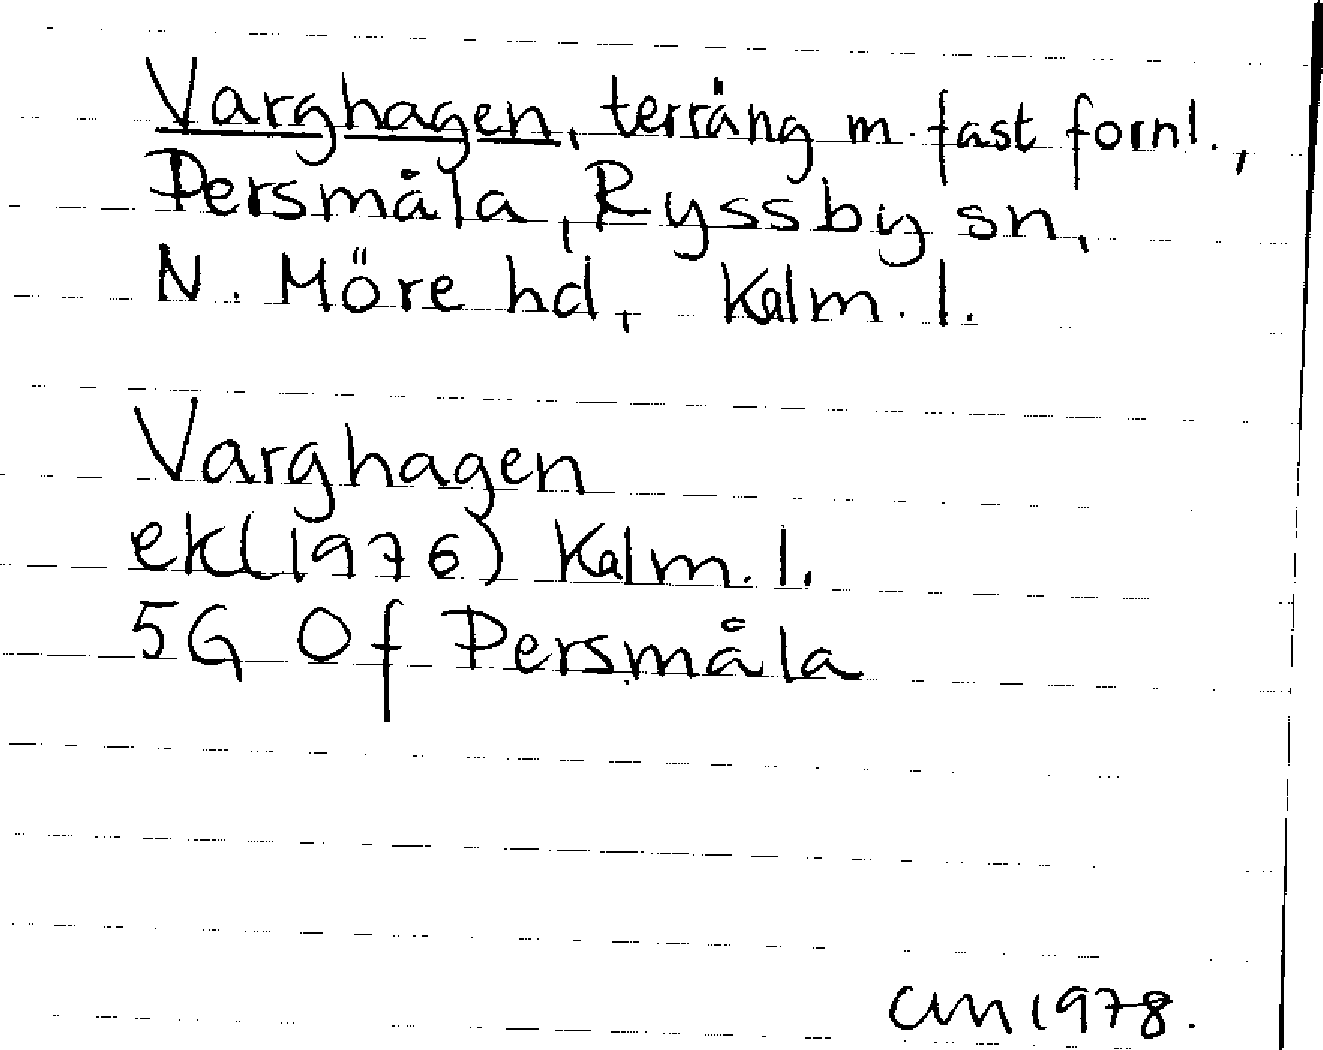 Varghagen, terräng m. fast fornl.,
Persmåla, Ryssby sn,
N. Möre hd, Kalm. l.
Varghagen
ekl(1976) Kalm. l.
5G 0f Persmåla
1978.